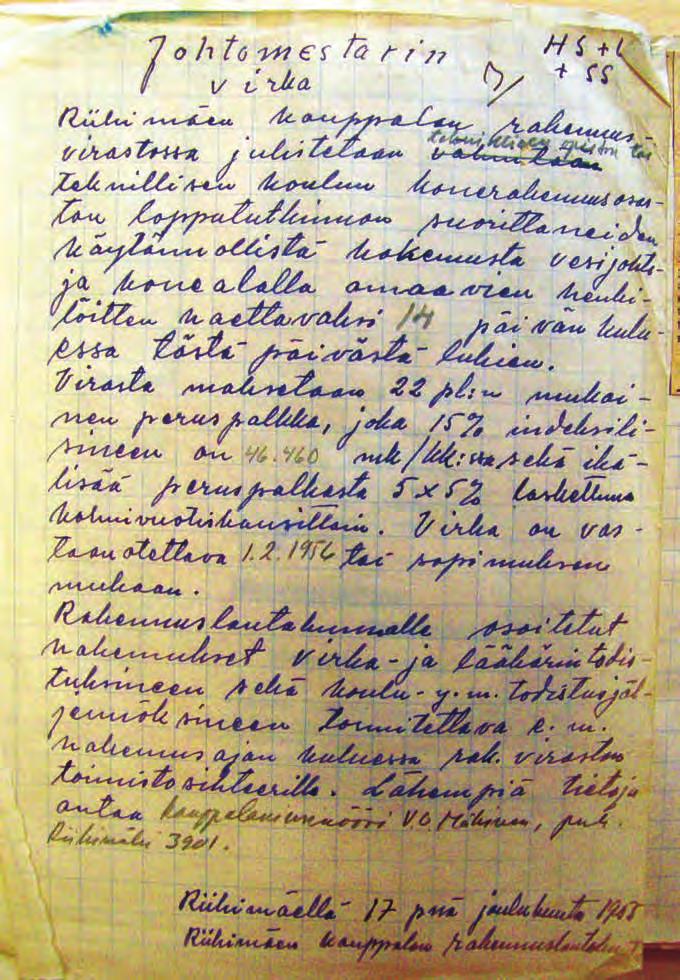 Johtomestarin
virka
HS + L
+ SS
Riihimäen kauppalan rakennus-
teknillisen opiston tai
virastossa julistetaan
teknillisen koulun konerakennusosas-
ton lopputukinnon suorittaneiden
käytännöllistä kokemusta vesijohto-
ja konealalla omaavien henki-
löitten haettavaksi 14 päivän kulu-
essa tästä päivästä lukien.
Virasta maksetaan 22 pl:n mukai-
nen peruspalkka, joka 15% indeksili-
sineen on 46.460 mk/kk:ssa sekä ikä-
lisää peruspalkasta 5 x 5% laskettuna
kolmivuotiskausittain. Virka on vas-
taanotettava 1.2.1956 tai sopimuksen
mukaan.
Rakennuslautakunnalle osoitetut
hakemukset virka- ja lääkärintodis-
tuksineen sekä koulu- y.m. todistusjäl-
jennöksineen toimitettava e.m.
hakemusajan kuluessa rak. viraston
toimistosihteerille. Lähempiä tietoja
antaa kauppalaninsinööri V.O. Mäkinen, puh.
Riihimäki 3901.
Riihimäellä 17 pnä joulukuuta 1955
Riihimäen kauppalan rakennuslautakunta